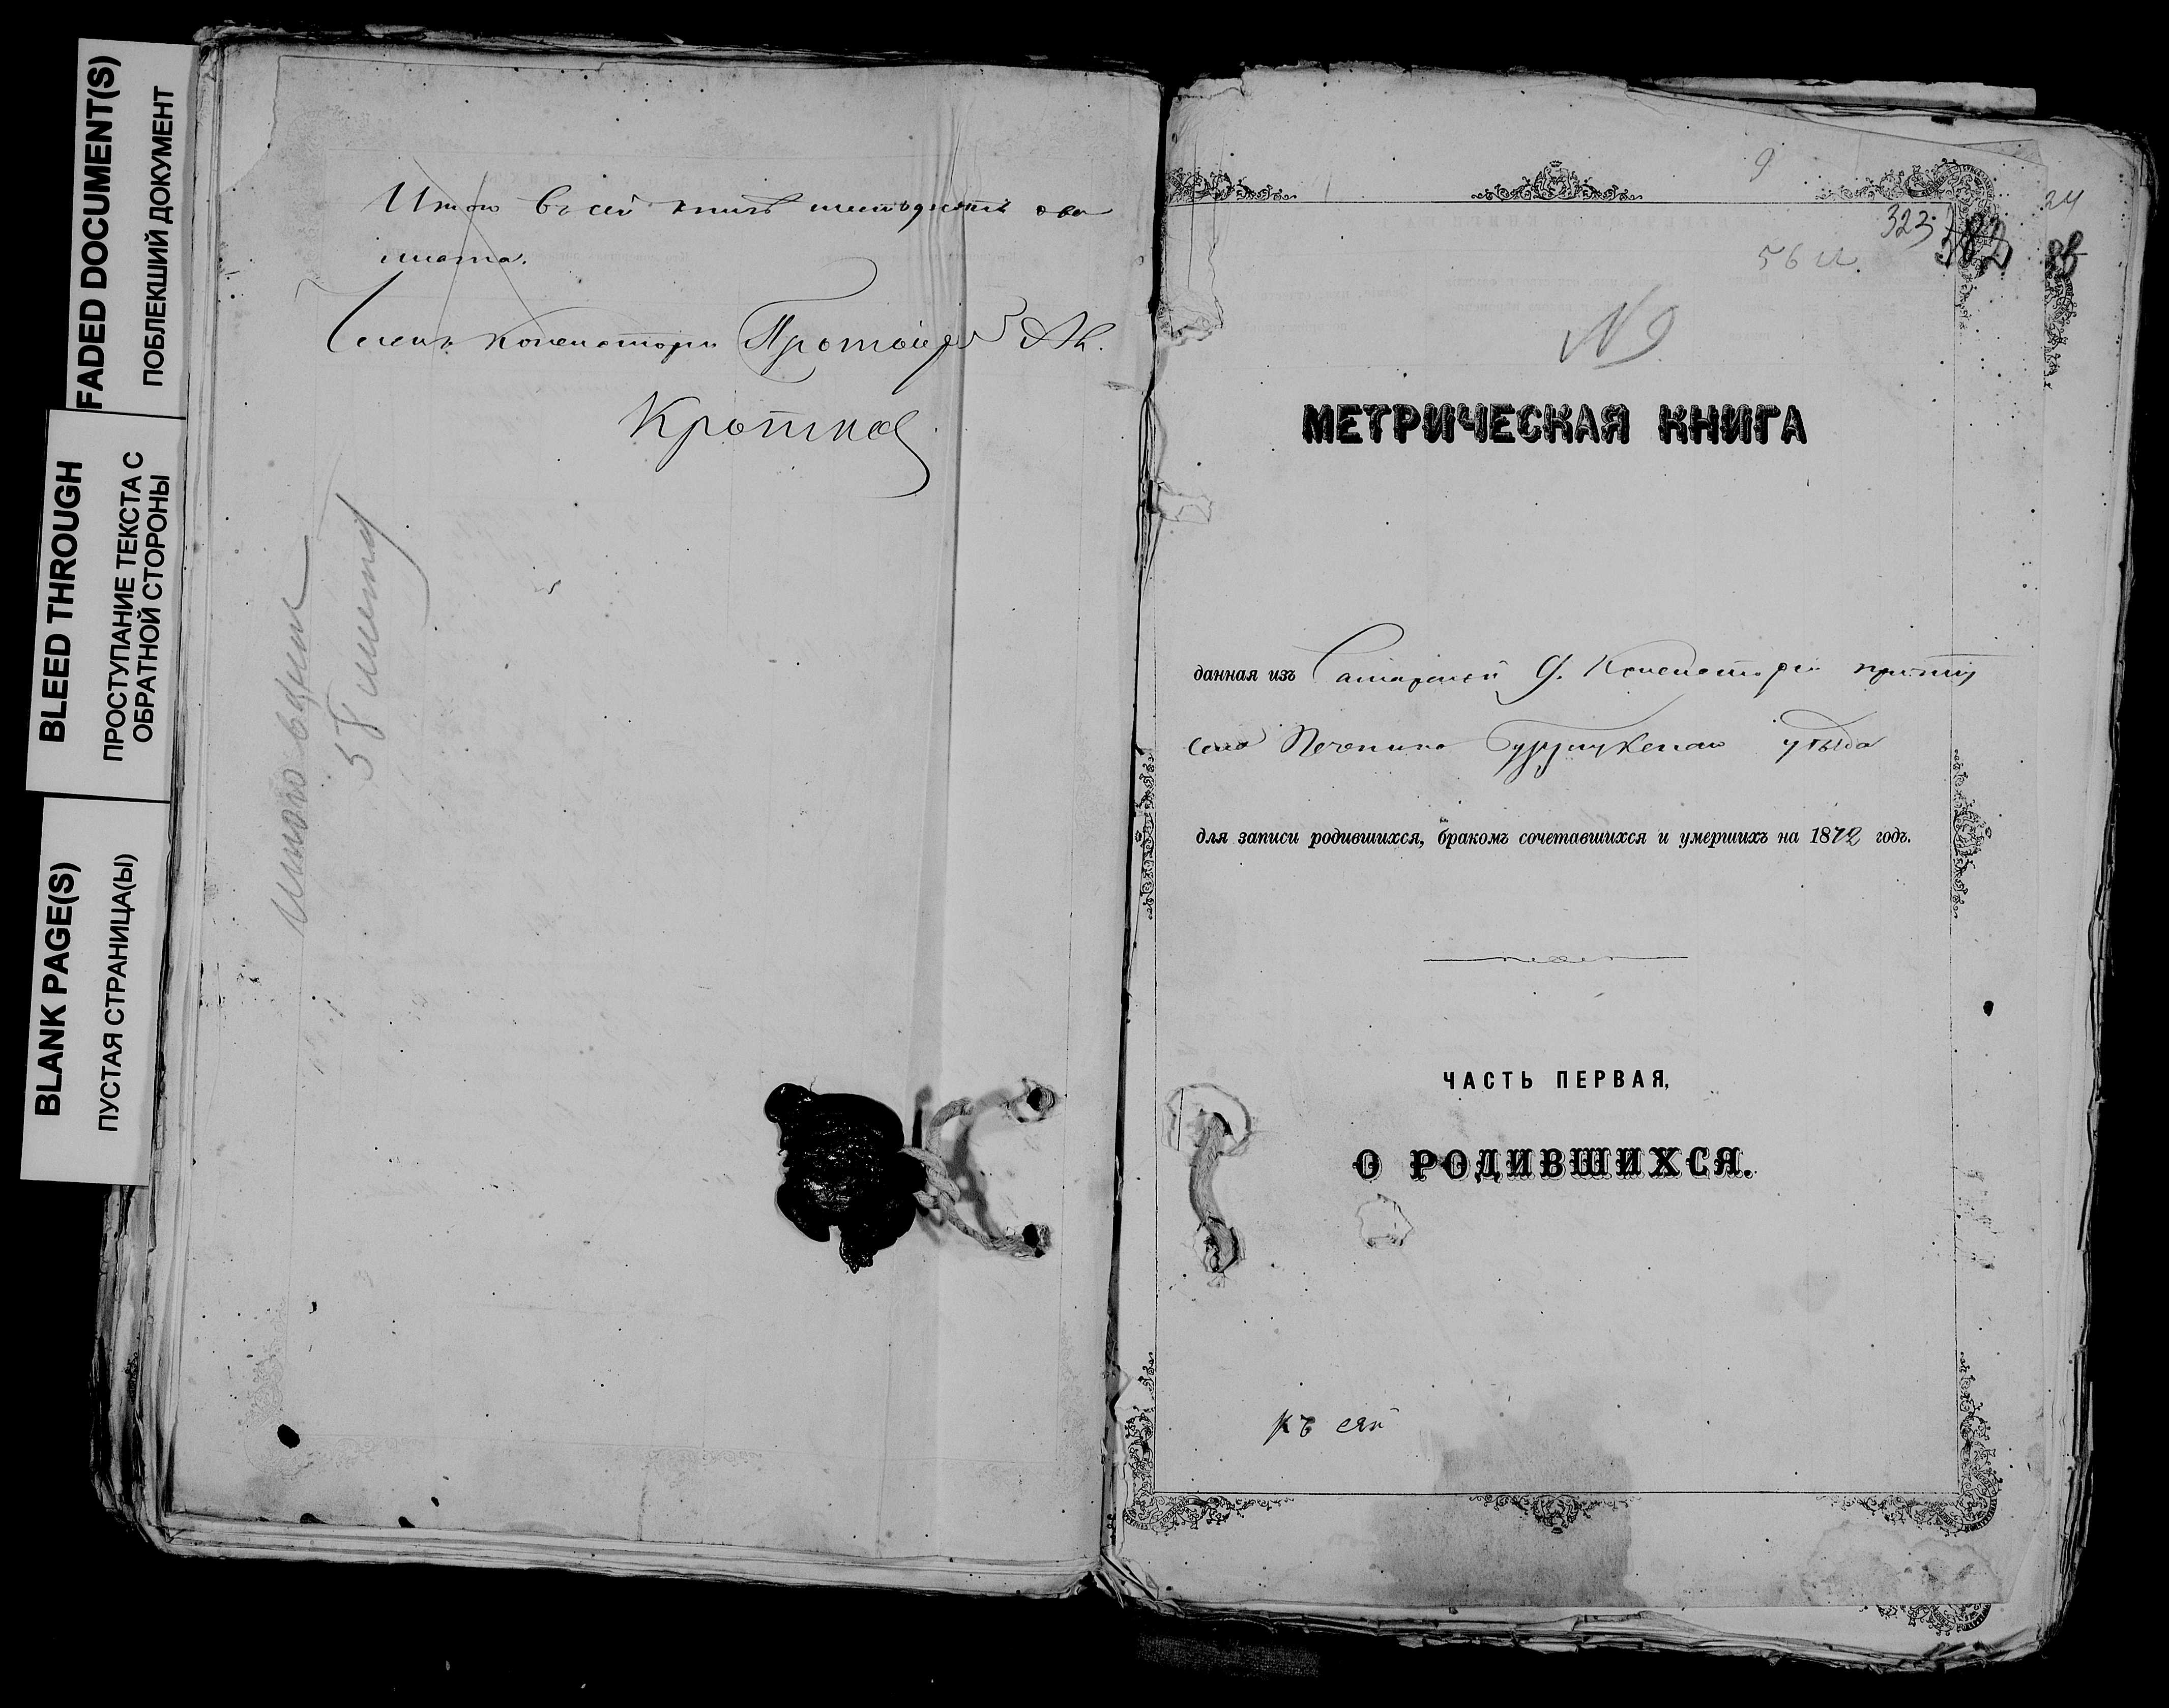 FADED DOCUMENT(S)
ПОБЛЕКШИЙ ДОКУМЕНТ
BLEED THROUGH
ПРОСТУПАНИЕ ТЕКСТА С
ОБРАТНОЙ СТОРОНЫ
BLANK PAGE(S)
ПУСТАЯ СТРАНИЦА(Ы)
Итого въ сей книгѣ шестьдесятъ два
листа.
Членъ консисторіи Протоіерей
Итого
58 листа
9
24
323
56 л.
N9
МЕТРИЧЕСКАЯ КНИГА
данная изъ Самарской Д. Консисторіи причту
села Бузулукскаго уѣзда
для записи родившихся, бракомъ сочетавшихся и умершихъ на 1872 годъ.
ЧАСТЬ ПЕРВАЯ,
О РОДИВШИХСЯ.
къ сей